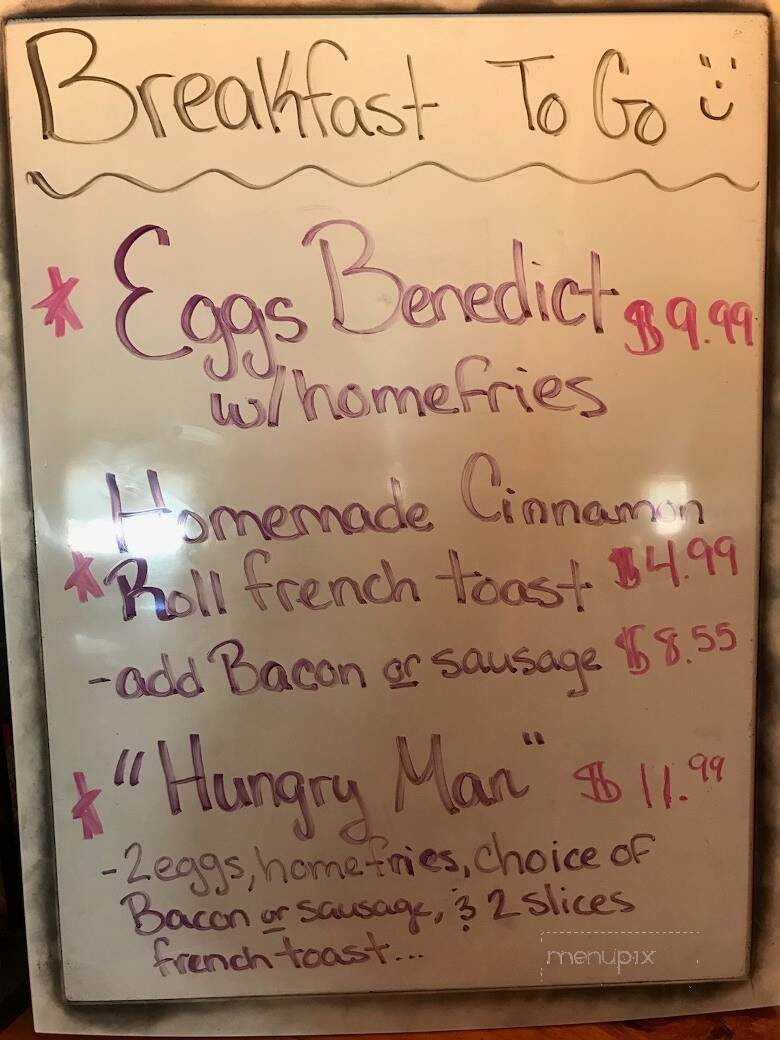 Breakfast To Go
Eggs Benedict $9.99
w/homefries
Homemade Cinnamon
Roll french toast $4.99
-add Bacon or sausage $8.55
"Hungry Man" $11.99
-2eggs, homefries, choice of
Bacon or sausage, & 2 slices
french toast...
menupix